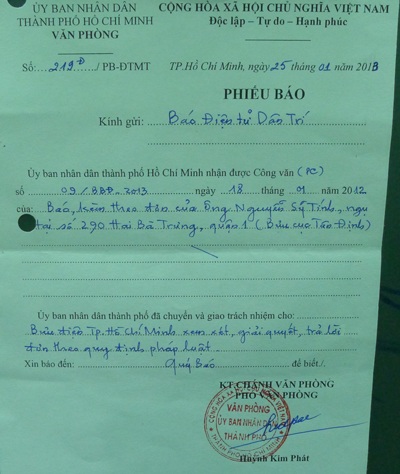 ỦY BAN NHÂN DÂN
THÀNH PHỐ HỒ CHÍ MINH
VĂN PHÒNG
CỘNG HÒA XÃ HỘI CHỦ NGHĨA VIỆT NAM
Độc lập - Tự do - Hạnh phúc
Số: 219Đ / PB-ĐTMT
TP.Hồ Chí Minh, ngày 25 tháng 01 năm 2013
PHIẾU BÁO
Kính gửi: Báo Điện tử Dân Trí
Ủy ban nhân dân thành phố Hồ Chí Minh nhận được Công văn (PC)
số 09/BBĐ-2013 ngày 18 tháng 01 năm 2012
của: Báo, kèm theo đơn của Ông Nguyễn Sỹ Tính, ngụ
tại số 290 Hai Bà Trưng, quận 1 (Bưu cục Tân Định)
Ủy ban nhân dân thành phố đã chuyển và giao trách nhiệm cho:
Bưu điện Tp. Hồ Chí Minh xem xét, giải quyết, trả lời
đơn theo quy định pháp luật.
Xin báo đến: Quý Báo để biết./.
KT.CHÁNH VĂN PHÒNG
PHÓ VĂN PHÒNG
VĂN PHÒNG
ỦY BAN NHÂN DÂN
THÀNH PHỐ
Huỳnh Kim Phát